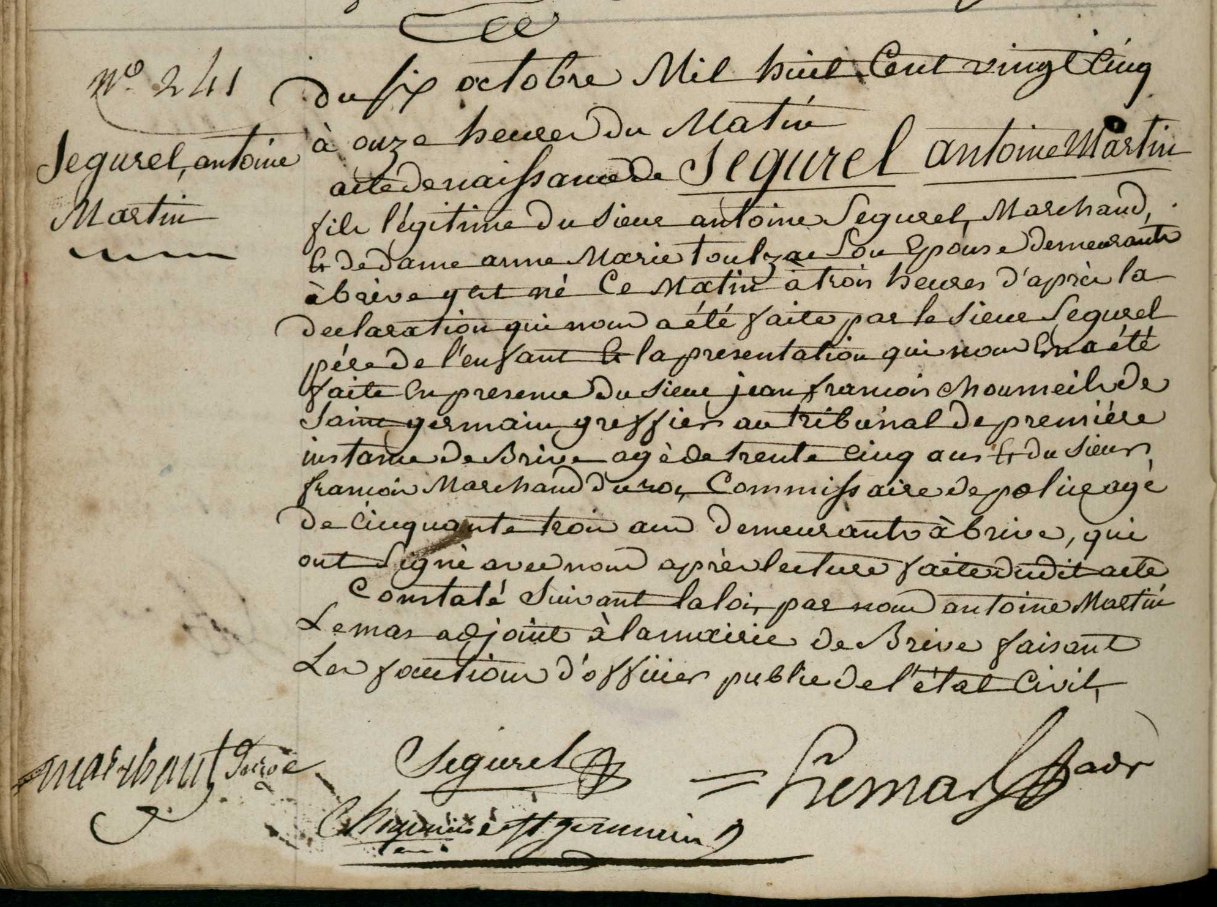 n.º 241
Segurel, antoine
Martin
Du six octobre Mil huit Cent vingt Cinq
à onze heures du Matin
acte de naissance de Segurel antoine Martin
fils légitime du sieur antoine Segurel, Marchand,
et de dame anne Marie toulzac son Epouse demeurants
à brive y est né Ce Matin à trois heures d'après la
declaration qui nous a été faite par le sieur Segurel
père de l'enfant et la presentation qui nous En a été
faite En presence du sieur jean françois Choumeils de
Saint germain, greffier au tribunal de première
instance de Brive agè de trente Cinq ans et du sieur
françois Marchand duroc, Commissaire de police agé
de Cinquante trois ans demeurants à brive, qui
ont Signé avec nous après lecture faite dudit acte
Constaté suivant la loi, par nous antoine Martin
Lemas adjoint à la mairie de Brive faisant
Les fonctions d'officier public de l'état Civil,
Segurel
Lemas adt